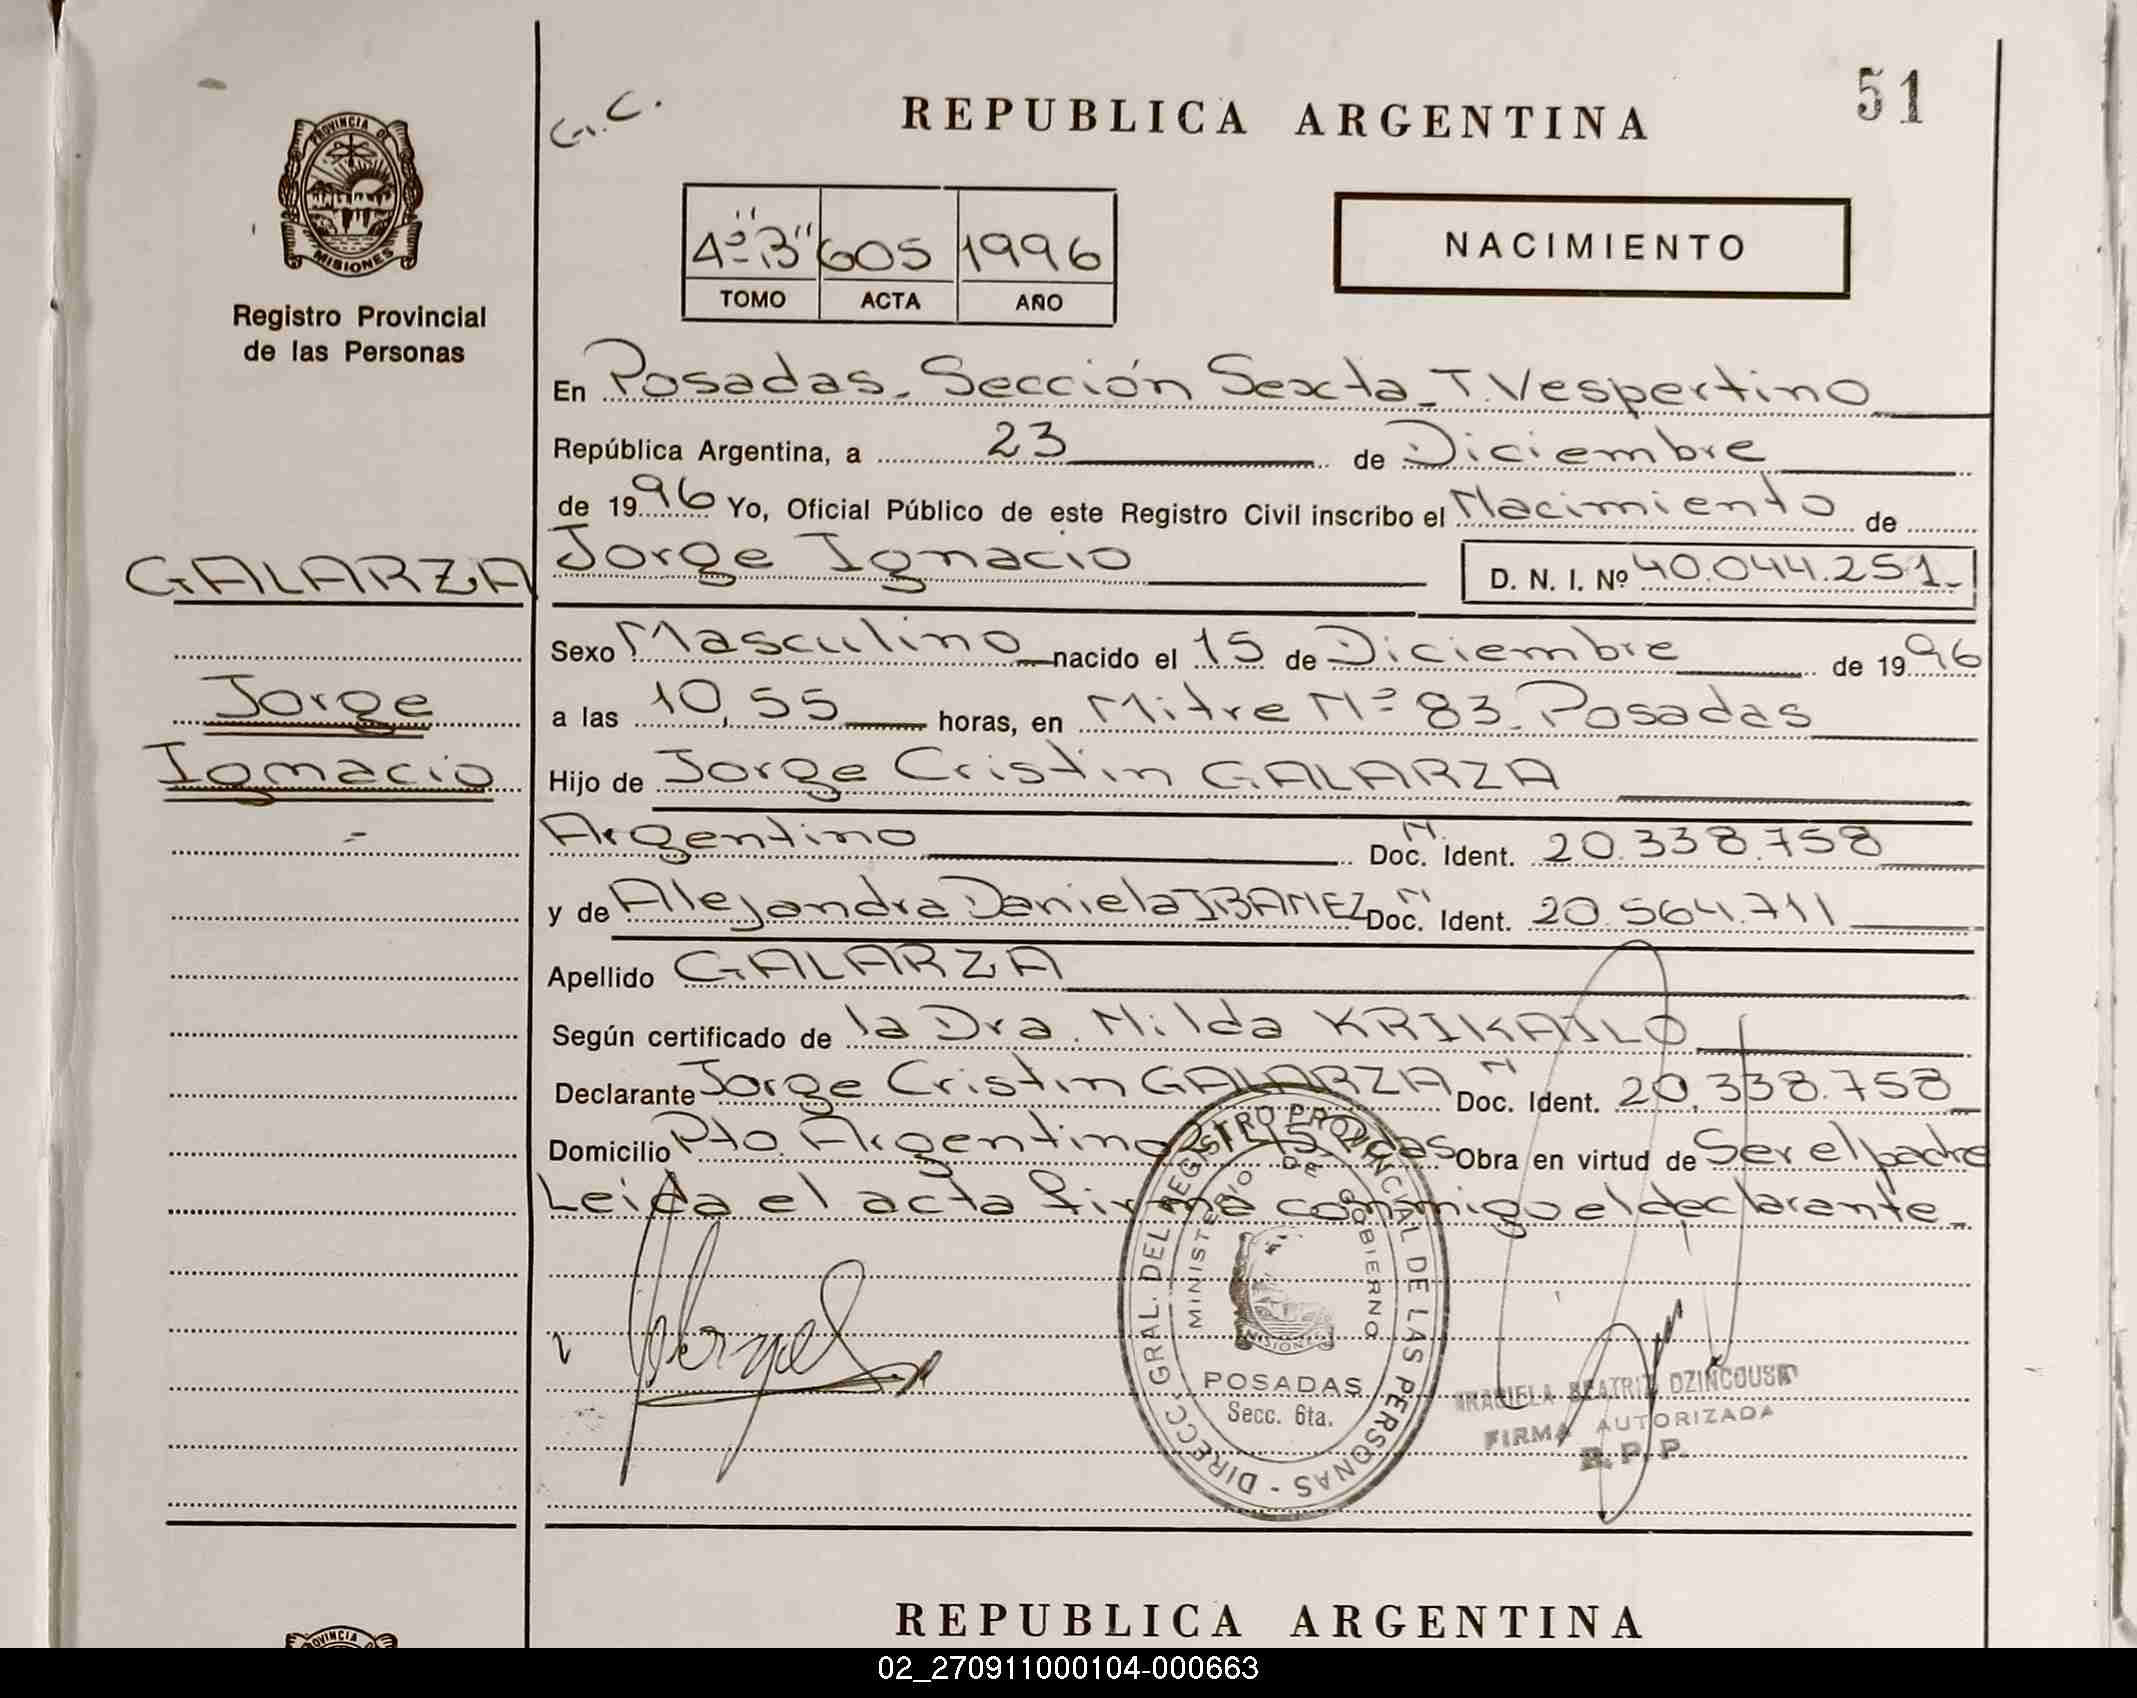 51
G.C.
REPUBLICA ARGENTINA
PROVINCIA DE
MISIONES
Registro Provincial
de las Personas
4º "B" 605 1996
TOMO ACTA AÑO
NACIMIENTO
En Posadas. Sección Sexta - T. Vespertino
República Argentina, a 23 de Diciembre
de 1996 Yo, Oficial Público de este Registro Civil inscribo el Nacimiento de
GALARZA Jorge Ignacio D. N. I. Nº 40.044.251.-
Sexo Masculino nacido el 15 de Diciembre de 1996
Jorge a las 10,55 horas, en Mitre Nº 83. Posadas
Ignacio Hijo de Jorge Cristin GALARZA
- Argentino Doc. N. Ident. 20.338.758
y de Alejandra Daniela IBAÑEZ Doc. N. Ident. 20.564.711
Apellido GALARZA
Según certificado de la Dra. Nilda KRIKAILO
Declarante Jorge Cristin GALARZA Doc. N Ident. 20.338.758
Domicilio Pto. Argentino Posadas Obra en virtud de Ser el padre
Leida el acta firma conmigo el declarante.-
DIRECC. GRAL. DEL REGISTRO PROVINCIAL DE LAS PERSONAS -
MINISTERIO DE GOBIERNO
MISIONES
POSADAS
Secc. 6ta.
GRACIELA BEATRIZ DZINCOUSKI
FIRMA AUTORIZADA
R. P. P.
REPUBLICA ARGENTINA
PROVINCIA DE
02_270911000104-000663